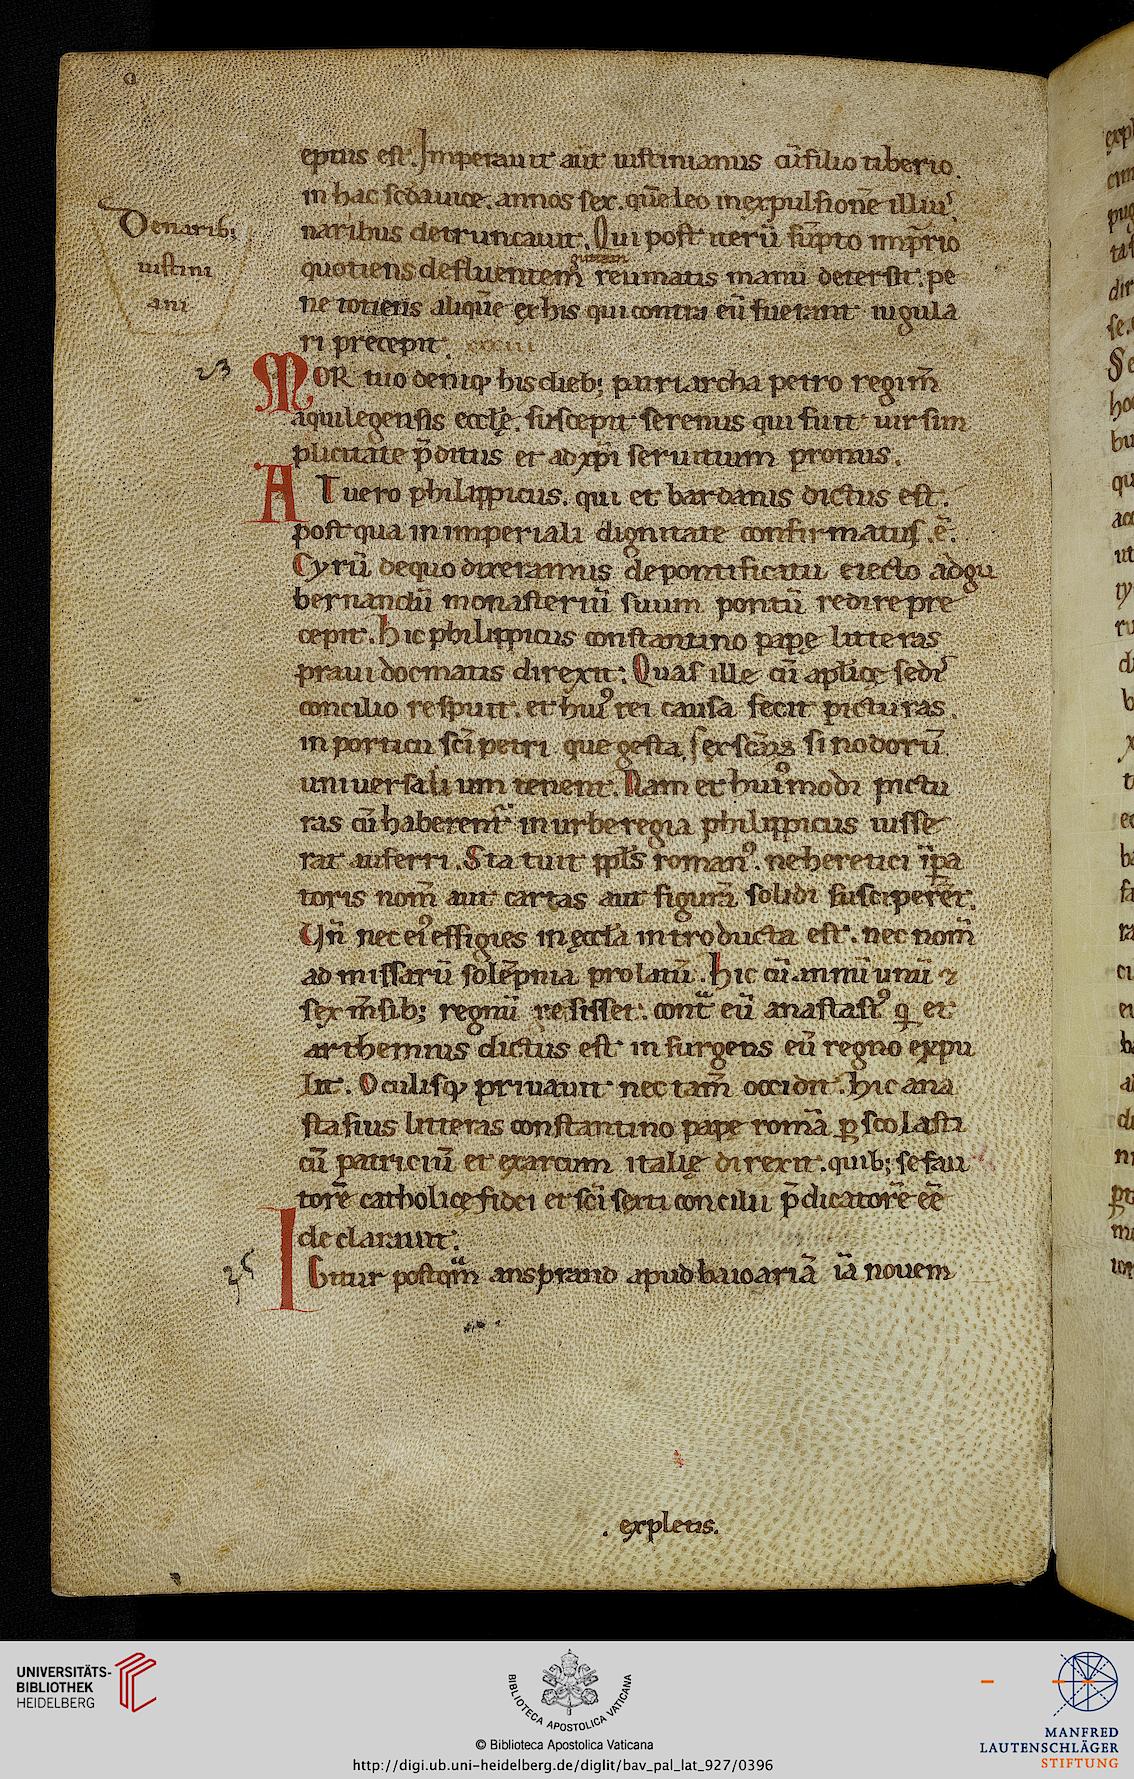 a
eptus est. Imperauit aut̄ iustinianus cū filio tiberio.
in hac scd̄a uice. annos sex. quē leo in expulsione illius
Denarib;
iustini
ani
naribus detruncauit. Qui post iterū sūpto imp̄rio
guttam
quotiens defluentem reumatis manū detersit. pe
ne totiens aliquē ex his qui contra eū fuerant iugula
ri precepit. xxxiii
23
MORtuo deniq; his dieb; patriarcha petro regim̄
aquilegensis eccl̄ę. suscepit serenus qui fuit uir sim
plicitate p̄ditus et ad xp̄i seruitium pronus.
AT uero philippicus. qui et bardanis dictus est.
post qua in imperiali dignitate confirmatus ē.
Cyrū de quo dixeramus de pontificatu eiecto ad gu
bernandū monasteriū suum pontū redire pre
cepit. Hic philippicus constantino papę litteras
praui docmatis direxit: Quas ille cū apl̄icę sedis
concilio respuit. et hui᾿ rei causa fecit picturas.
in porticu sc̄i petri que gesta. sex sc̄arꝫ sinodorū
uniuersalium tenent. Nam et hui᾿modi pictu
ras cū haberent᷑ in urbe regia philippicus iusse
rat auferri. Statuit ppl̄s roman᾿. ne heretici īpa
toris nom̄ aut cartas aut figurā solidi susciperēt.
Un̄ nec ei᾿ effigies in ęccl̄a introducta est. nec nom̄
ad missarū solēpnia prolatū. Hic cū annū unū ⁊
sex m̄sib; regnū rexisset. cont̄ eū anastasi᾿ q et
arthemius dictus est insurgens eū regno expu
lit. Oculisq; priuauit nec tam̄ occidit. Hic ana
stasius litteras constantino pape romā ꝑ scolasti
cū patriciū et exarcum italię direxit. quib; se fau
torē catholicę fidei et sc̄i sexti concilii p̄dicatorē eē
declarauit.
25
IGitur postqm̄ ansprand apud baioariā iā nouem
. expletis.
UNIVERSITÄTS-
BIBLIOTHEK
HEIDELBERG
BIBLIOTECA APOSTOLICA VATICANA
© Biblioteca Apostolica Vaticana
http://digi.ub.uni-heidelberg.de/diglit/bav_pal_lat_927/0396
MANFRED
LAUTENSCHLÄGER
STIFTUNG